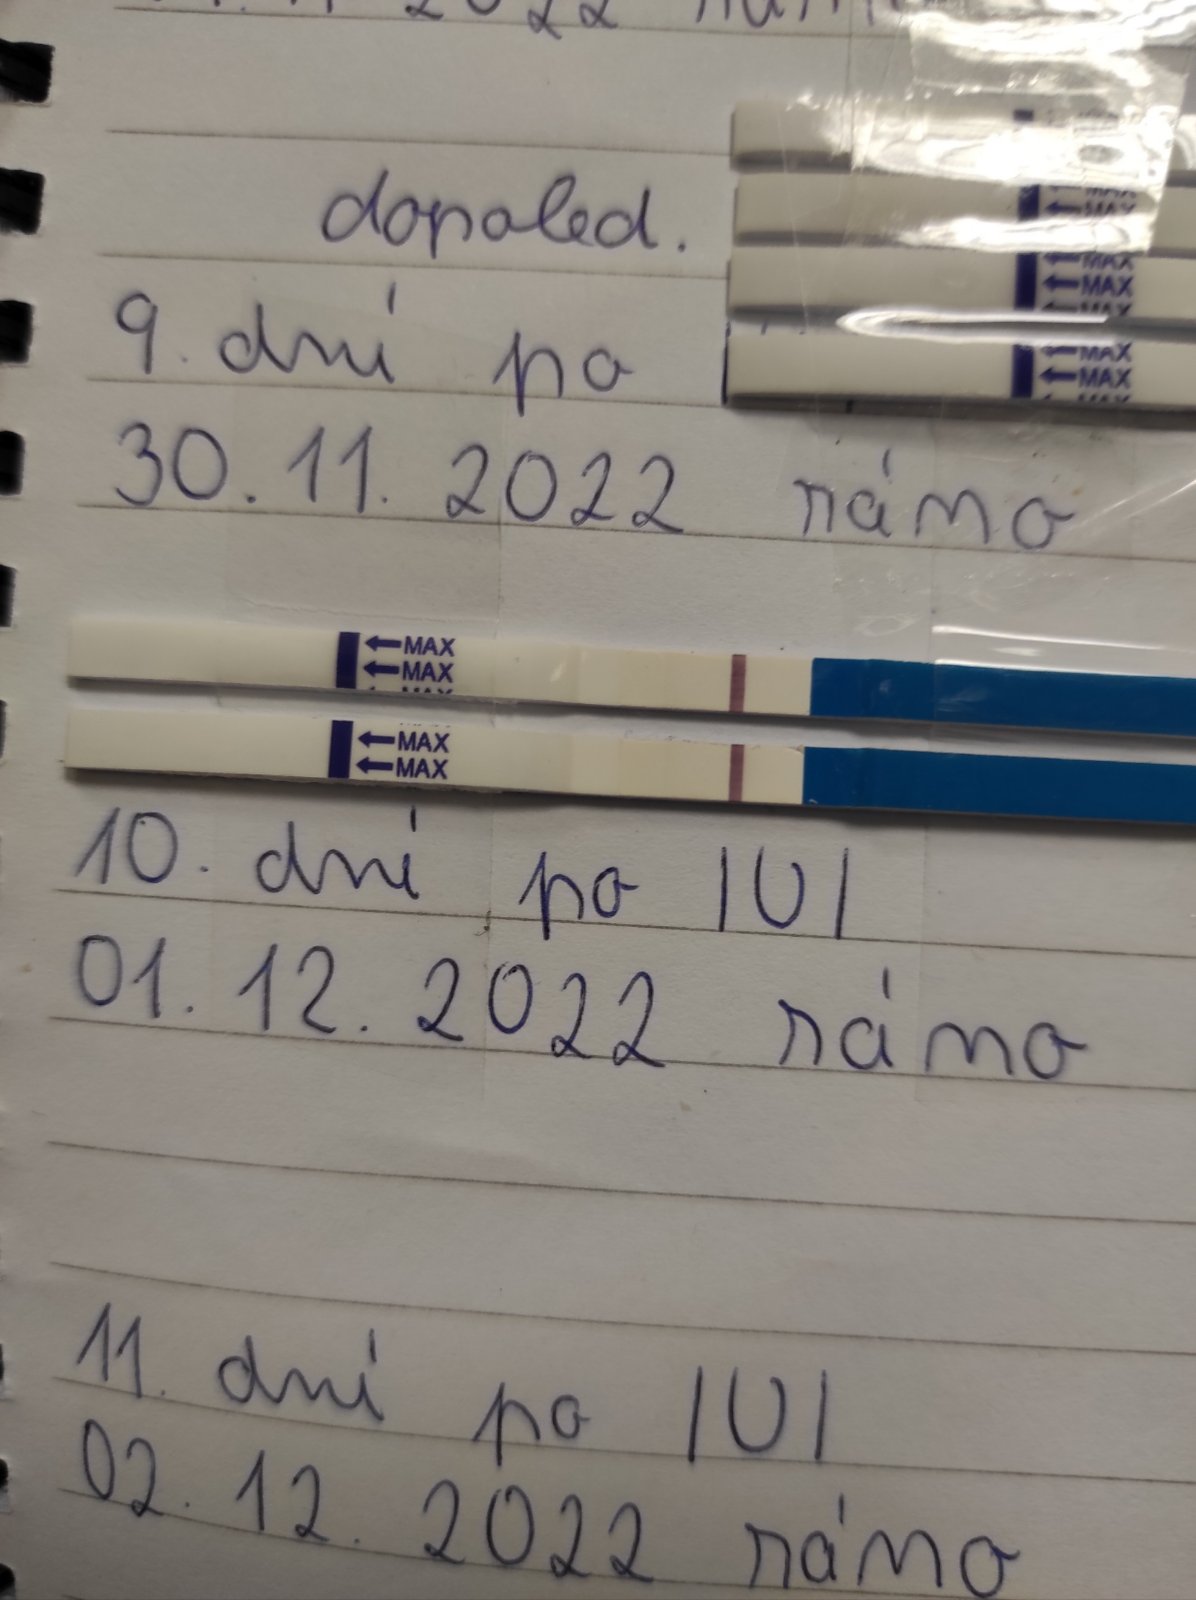 2022
dopoled.
MAX
MAX
MAX
MAX
9. dní po
MAX
MAX
30. 11. 2022 ráno
MAX
MAX
MAX
MAX
10. dní po IUI
01. 12. 2022 ráno
11. dní po IUI
02. 12. 2022 ráno